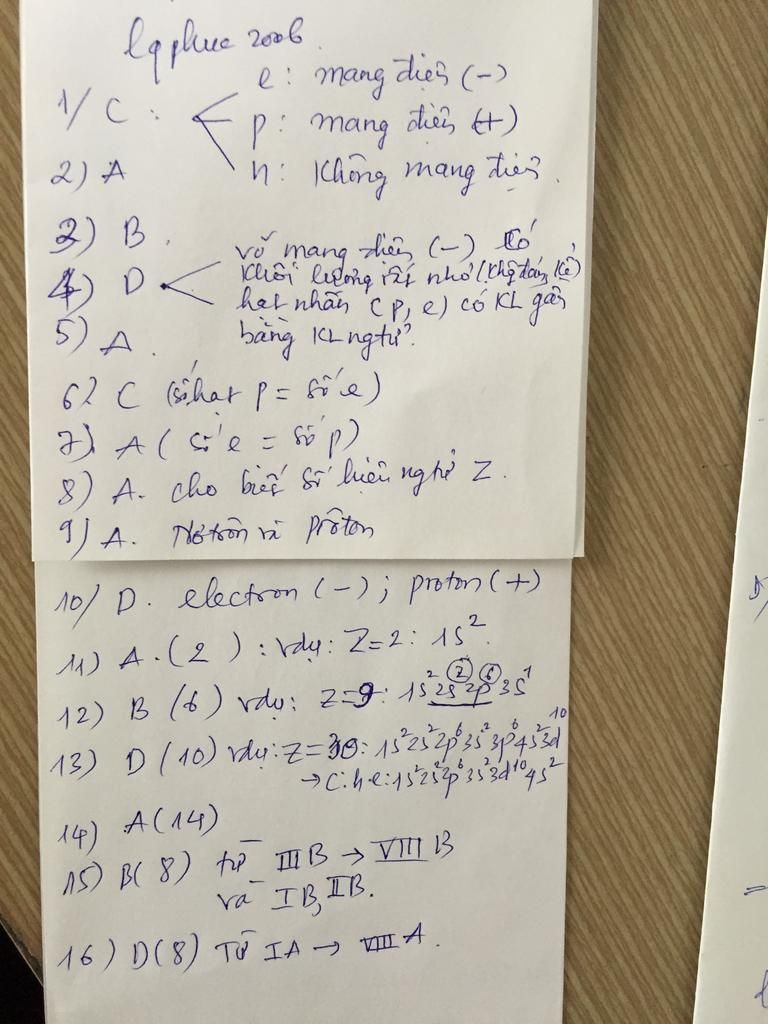 lqphuc 2006
1/ C : e : mang điện (-)
p : mang điện (+)
n : Không mang điện.
2) A
3) B.
4) D vỏ mang điện (-) có
khối lượng rất nhỏ (không đáng kể)
hạt nhân (p, e) có KL gần
bằng KL ngtử.
5) A.
6) C (số hạt p = số e)
7) A ( số e = số p)
8) A. cho biết số hiệu ngtử Z.
9) A. Nơtron và proton
10/ D. electron (-) ; proton (+)
11) A. (2) : vdụ: Z=2: 1s²
12) B (6) vdụ: Z=9: 1s² 2s² 2p⁶ 3s¹
13) D (10) vdụ: Z=30: 1s²2s²2p⁶3s²3p⁶4s²3d¹⁰
→ c.h e: 1s²2s²2p⁶3s²3d¹⁰4s²
14) A (14)
15) B (8) từ IIIB → VIIIB
và IB, IIB.
16) D (8) Từ IA → VIIIA.